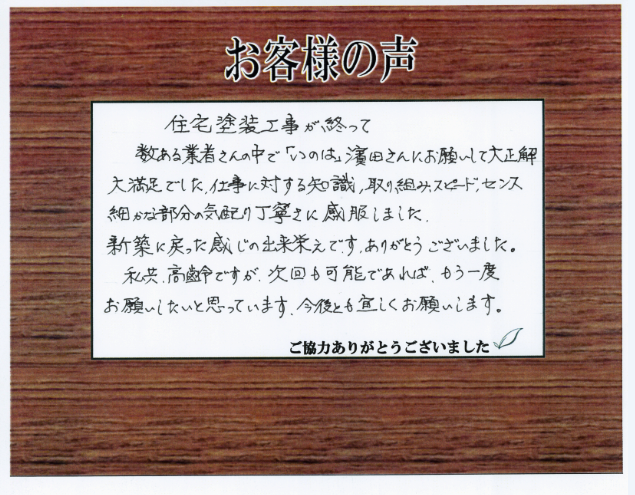 お客様の声
住宅塗装工事が終って
数ある業者さんの中で「いのは」濱田さんにお願いして大正解
大満足でした。仕事に対する知識,取り組み,スピード,センス
細かな部分の気配り丁寧さに感服しました.
新築に戻った感じの出来栄えです。ありがとうございました。
私共、高齢ですが、次回も可能であれば、もう一度
お願いしたいと思っています、今後とも宜しくお願いします。
ご協力ありがとうございました